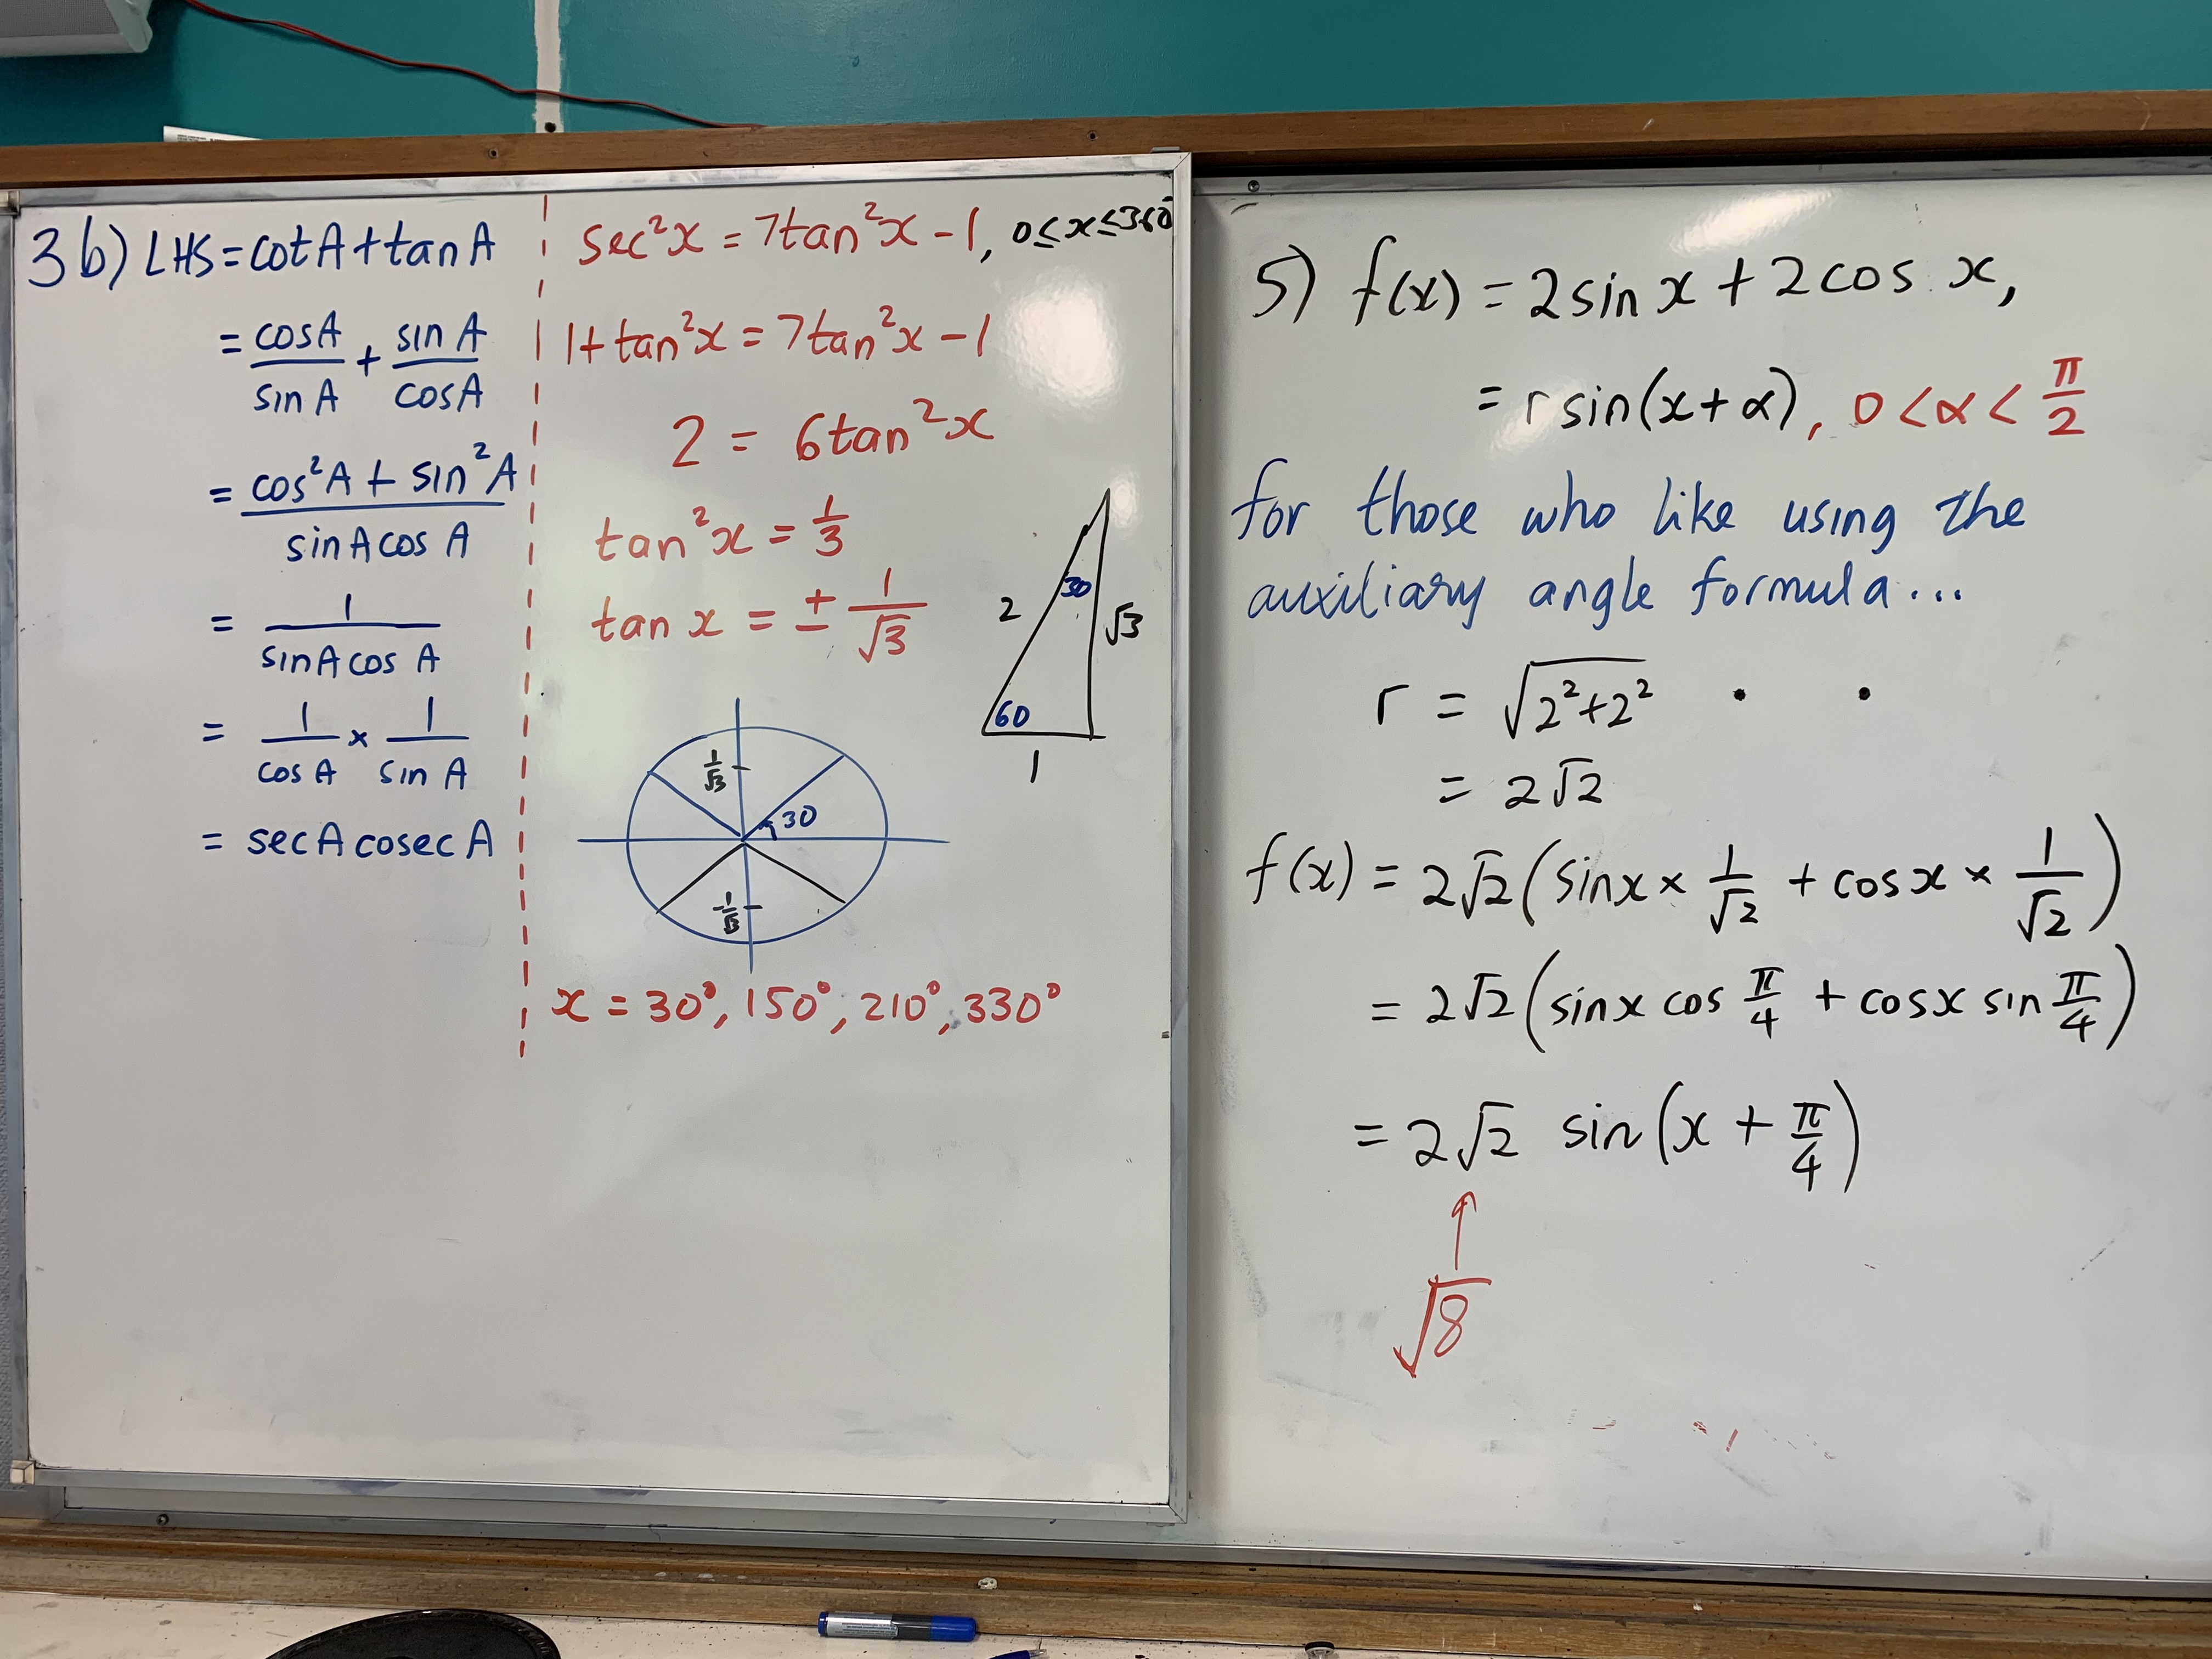 3b) LHS = cot A + tan A
= cosA/sin A + sin A/cosA
= cos²A + sin²A / sin A cos A
= 1/sin A cos A
= 1/cos A × 1/sin A
= sec A cosec A
sec²x = 7tan²x − 1, 0 ≤ x ≤ 360°
1 + tan²x = 7tan²x − 1
2 = 6tan²x
tan²x = 1/3
tan x = ± 1/√3
30
2
√3
60
1
1/√3
30
-1/√3
x = 30°, 150°, 210°, 330°
5) f(x) = 2sin x + 2cos x,
= r sin(x + α), 0 < α < π/2
for those who like using the
auxiliary angle formula...
r = √2²+2²
= 2√2
f(x) = 2√2 (sinx × 1/√2 + cosx × 1/√2)
= 2√2 (sinx cos π/4 + cosx sin π/4)
= 2√2 sin(x + π/4)
√8